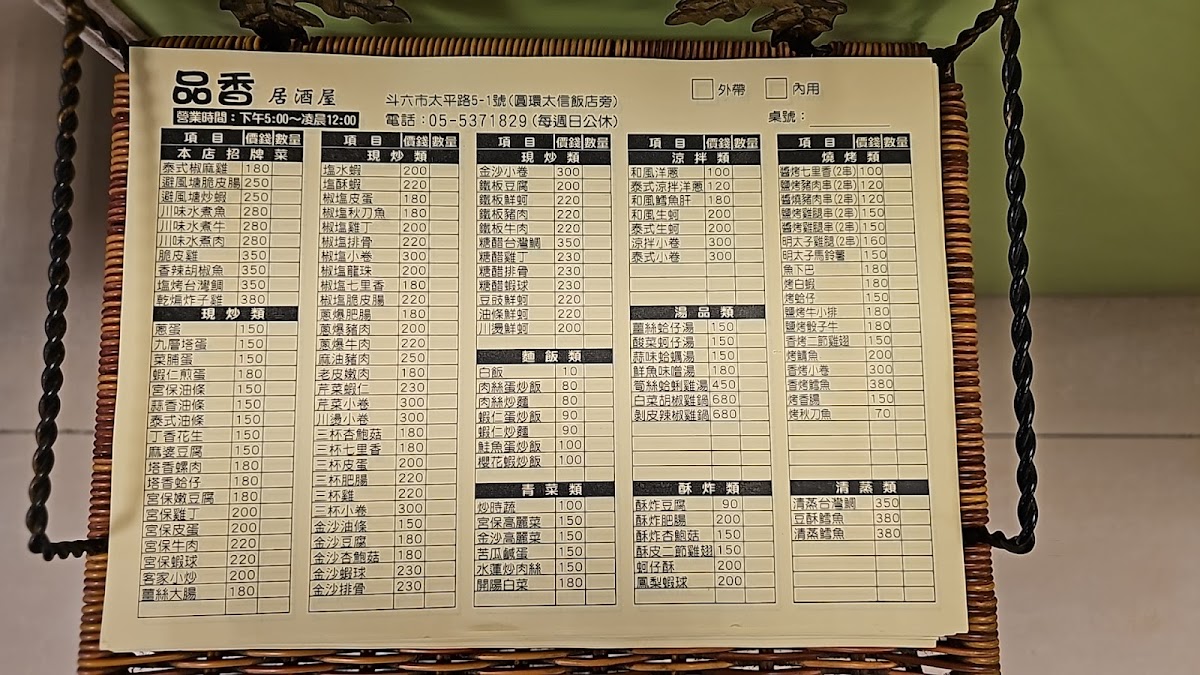 品香 居酒屋
營業時間：下午5:00～凌晨12:00
斗六市太平路5-1號(圓環太信飯店旁)
電話：05-5371829(每週日公休)
外帶 內用
桌號：
項目 價錢 數量
本店招牌菜
泰式椒麻雞 180
避風塘脆皮腸 250
避風塘炒蝦 250
川味水煮魚 280
川味水煮牛 280
川味水煮肉 280
脆皮雞 350
香辣胡椒魚 350
塩烤台灣鯛 350
乾煸炸子雞 380
現炒類
蔥蛋 150
九層塔蛋 150
菜脯蛋 150
蝦仁煎蛋 180
宮保油條 150
蒜香油條 150
泰式油條 150
丁香花生 150
麻婆豆腐 150
塔香螺肉 180
塔香蛤仔 180
宮保嫩豆腐 180
宮保雞丁 200
宮保皮蛋 200
宮保牛肉 220
宮保蝦球 220
客家小炒 200
薑絲大腸 180
項目 價錢 數量
現炒類
塩水蝦 200
塩酥蝦 220
椒塩皮蛋 180
椒塩秋刀魚 180
椒塩雞丁 200
椒塩排骨 220
椒塩小卷 300
椒塩龍珠 200
椒塩七里香 180
椒塩脆皮腸 220
蔥爆肥腸 180
蔥爆豬肉 200
蔥爆牛肉 220
麻油豬肉 250
老皮嫩肉 180
芹菜蝦仁 230
芹菜小卷 300
川燙小卷 300
三杯杏鮑菇 180
三杯七里香 180
三杯皮蛋 200
三杯肥腸 220
三杯雞 220
三杯小卷 300
金沙油條 150
金沙豆腐 180
金沙杏鮑菇 180
金沙蝦球 230
金沙排骨 230
項目 價錢 數量
現炒類
金沙小卷 300
鐵板豆腐 200
鐵板鮮蚵 220
鐵板豬肉 220
鐵板牛肉 220
糖醋台灣鯛 350
糖醋雞丁 230
糖醋排骨 230
糖醋蝦球 230
豆豉鮮蚵 220
油條鮮蚵 220
川燙鮮蚵 200
麵飯類
白飯 10
肉絲蛋炒飯 80
肉絲炒麵 80
蝦仁蛋炒飯 90
蝦仁炒麵 90
鮭魚蛋炒飯 100
櫻花蝦炒飯 100
青菜類
炒時蔬 100
宮保高麗菜 150
金沙高麗菜 150
苦瓜鹹蛋 150
水蓮炒肉絲 150
開陽白菜 180
項目 價錢 數量
涼拌類
和風洋蔥 100
泰式涼拌洋蔥 120
和風鱈魚肝 180
和風生蚵 200
泰式生蚵 200
涼拌小卷 300
泰式小卷 300
湯品類
薑絲蛤仔湯 150
酸菜蚵仔湯 150
蒜味蛤蠣湯 150
鮮魚味噌湯 180
筍絲蛤蜊雞湯 450
白菜胡椒雞鍋 680
剝皮辣椒雞鍋 680
酥炸類
酥炸豆腐 90
酥炸肥腸 200
酥炸杏鮑菇 150
酥皮二節雞翅 150
蚵仔酥 200
鳳梨蝦球 200
項目 價錢 數量
燒烤類
醬烤七里香(2串) 100
鹽烤豬肉串(2串) 120
醬燒豬肉串(2串) 120
鹽烤雞腿串(2串) 150
醬烤雞腿串(2串) 150
明太子雞腿(2串) 160
明太子馬鈴薯 150
魚下巴 180
烤白蝦 180
烤蛤仔 150
鹽烤牛小排 180
鹽烤骰子牛 180
香烤二節雞翅 150
烤鯖魚 200
香烤小卷 300
香烤鱈魚 380
烤香腸 150
烤秋刀魚 70
清蒸類
清蒸台灣鯛 350
豆酥鱈魚 380
清蒸鱈魚 380